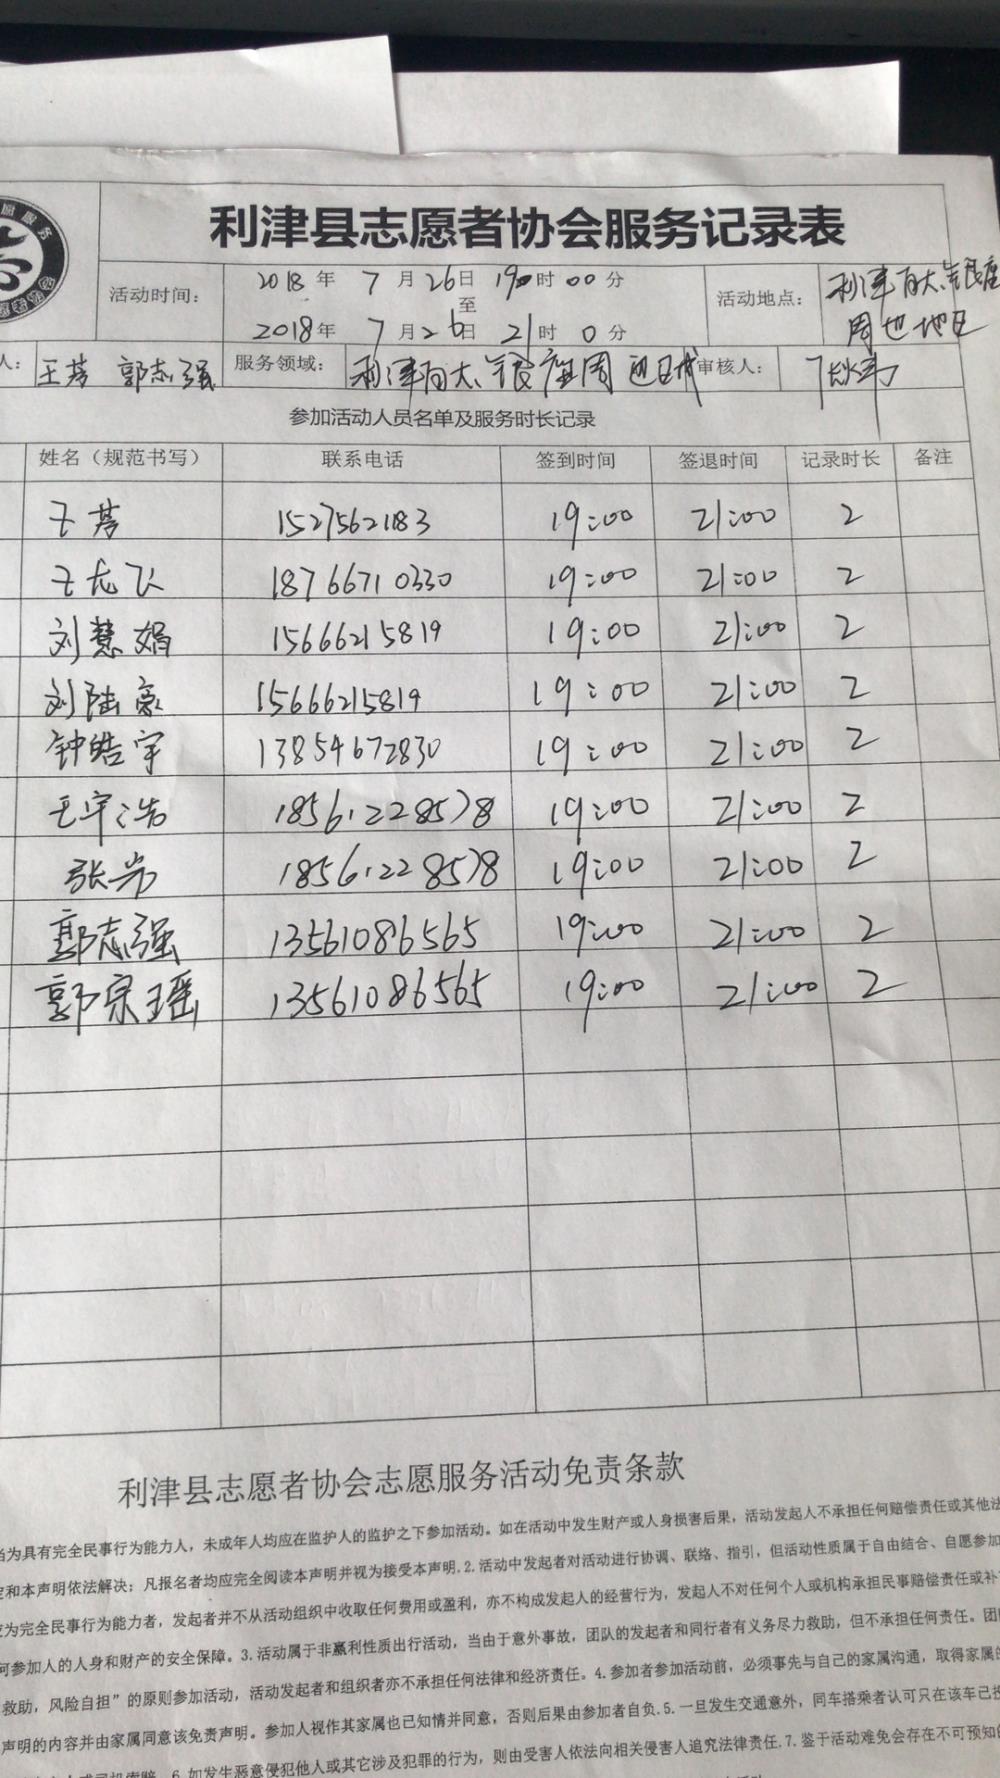 利津县志愿者协会服务记录表
活动时间: 2018 年 7 月 26日 19时 00 分
至
2018年 7 月 26日 21时 0 分
活动地点: 利津百大、银座
周边地区
人: 王芳 郭志强 服务领域: 利津百大、银座周边区域 审核人:
参加活动人员名单及服务时长记录
姓名（规范书写） 联系电话 签到时间 签退时间 记录时长 备注
王芳 15275621183 19:00 21:00 2
王龙飞 18766710330 19:00 21:00 2
刘慧娟 15666215819 19:00 21:00 2
刘陆豪 15666215819 19:00 21:00 2
钟皓宇 13854672830 19:00 21:00 2
王宇浩 18561228578 19:00 21:00 2
张岩 18561228578 19:00 21:00 2
郭志强 13561086565 19:00 21:00 2
郭宗瑶 13561086565 19:00 21:00 2
利津县志愿者协会志愿服务活动免责条款
当为具有完全民事行为能力人，未成年人均应在监护人的监护之下参加活动。如在活动中发生财产或人身损害后果，活动发起人不承担任何赔偿责任或其他法
定和本声明依法解决；凡报名者均应完全阅读本声明并视为接受本声明.2.活动中发起者对活动进行协调、联络、指引，但活动性质属于自由结合、自愿参加
应为完全民事行为能力者，发起者并不从活动组织中收取任何费用或盈利，亦不构成发起人的经营行为，发起人不对任何个人或机构承担民事赔偿责任或补
何参加人的人身和财产的安全保障。3.活动属于非赢利性质出行活动，当由于意外事故，团队的发起者和同行者有义务尽力救助，但不承担任何责任。团
救助，风险自担”的原则参加活动，活动发起者和组织者亦不承担任何法律和经济责任。4.参加者参加活动前，必须事先与自己的家属沟通，取得家属的
声明的内容并由家属同意该免责声明。参加人视作其家属也已知情并同意，否则后果由参加者自负.5.一旦发生交通意外，同车搭乘者认可只在该车已投
6.如发生恶意侵犯他人或其它涉及犯罪的行为，则由受害人依法向相关侵害人追究法律责任.7.鉴于活动难免会存在不可预知的